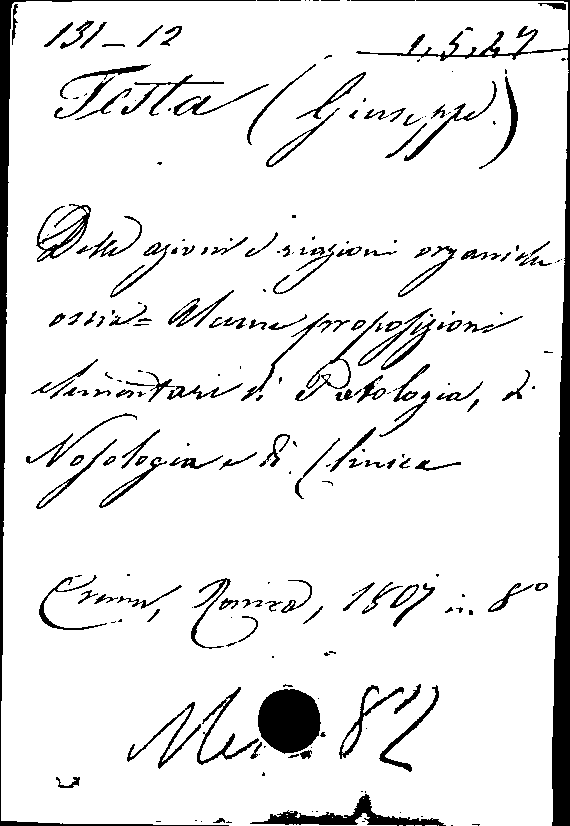 131-12 1,5,27
Testa (Giuseppe.)
Delle azioni e riazioni organiche
ossia= Alcune proposizioni
elementari di Patologia, di
Nosologia e di Clinica
1807 in 8°
82